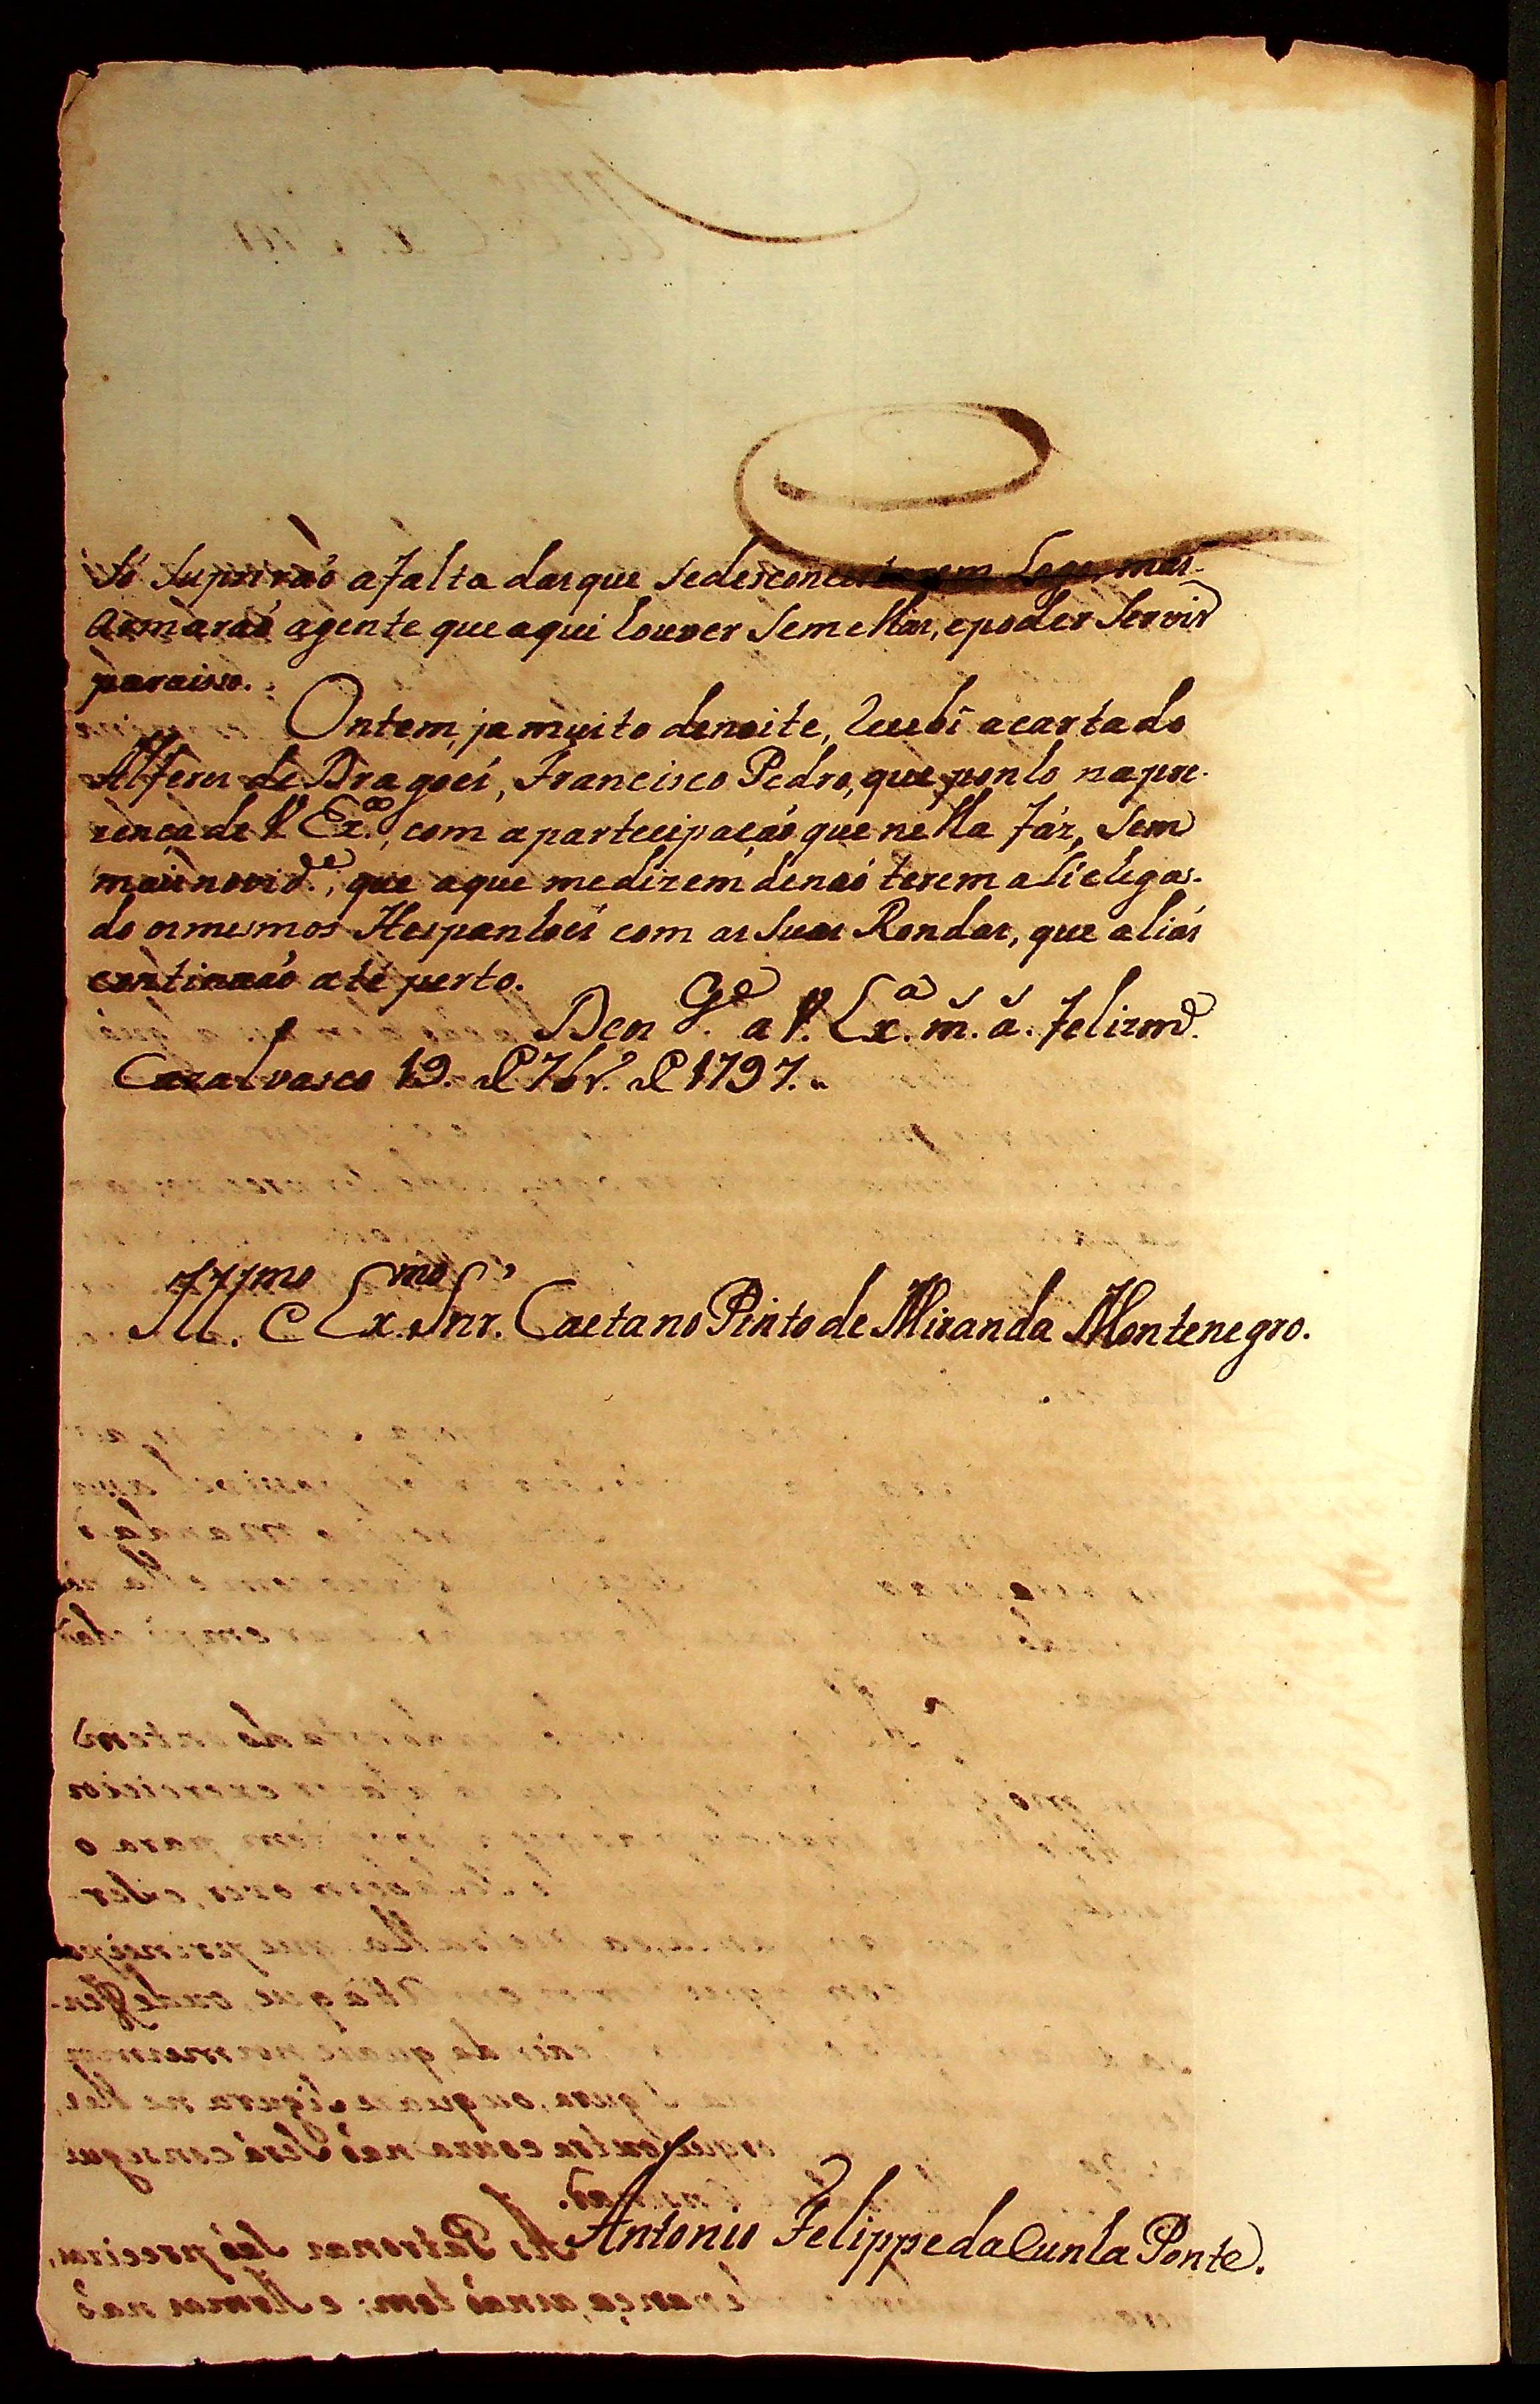 só supriraõ afalta dasque sedesconcertarem Logo, mas
armaraõ agente que aqui houver sem ellas, epoder servir
paraisso.
Ontem, ja muito denoite, recebi acartado
Alferes de Dragoes, Francisco Pedro, que ponho napre-
zença de V. Ex.ª, com a partecipaçaõ que nella fáz, sem
mais novid.e, que aque medizem denaõ terem ali chega-
do osmesmos Hespanhoes com as suas Rondas, que aliás
continuaõ até perto.
Deos G.e a V. Ex.ª m.s a.s Felizm.e
Cazalvasco 19. de 7br.º de 1797.
Ill.mo e Ex.mo Snr. Caetano Pinto de Miranda Montenegro.
Antonio Felippe da Cunha Ponte.